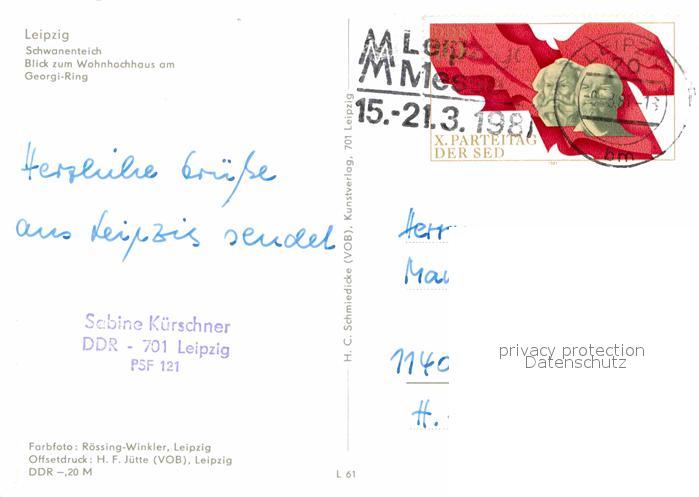 Leipzig
Schwanenteich
Blick zum Wohnhochhaus am
Georgi-Ring
Herzliche Grüße
aus Leipzig sendet
Sabine Kürschner
DDR - 701 Leipzig
PSF 121
Farbfoto: Rössing-Winkler, Leipzig
Offsetdruck: H. F. Jütte (VOB), Leipzig
DDR –,20 M
H. C. Schmiedicke (VOB), Kunstverlag, 701 Leipzig
L 61
MM Leip
Mes
15.-21.3.1981
DDR
X. PARTEITAG
DER SED
1981
70
bm
Herr
Ma
1140
H.
privacy protection
Datenschutz